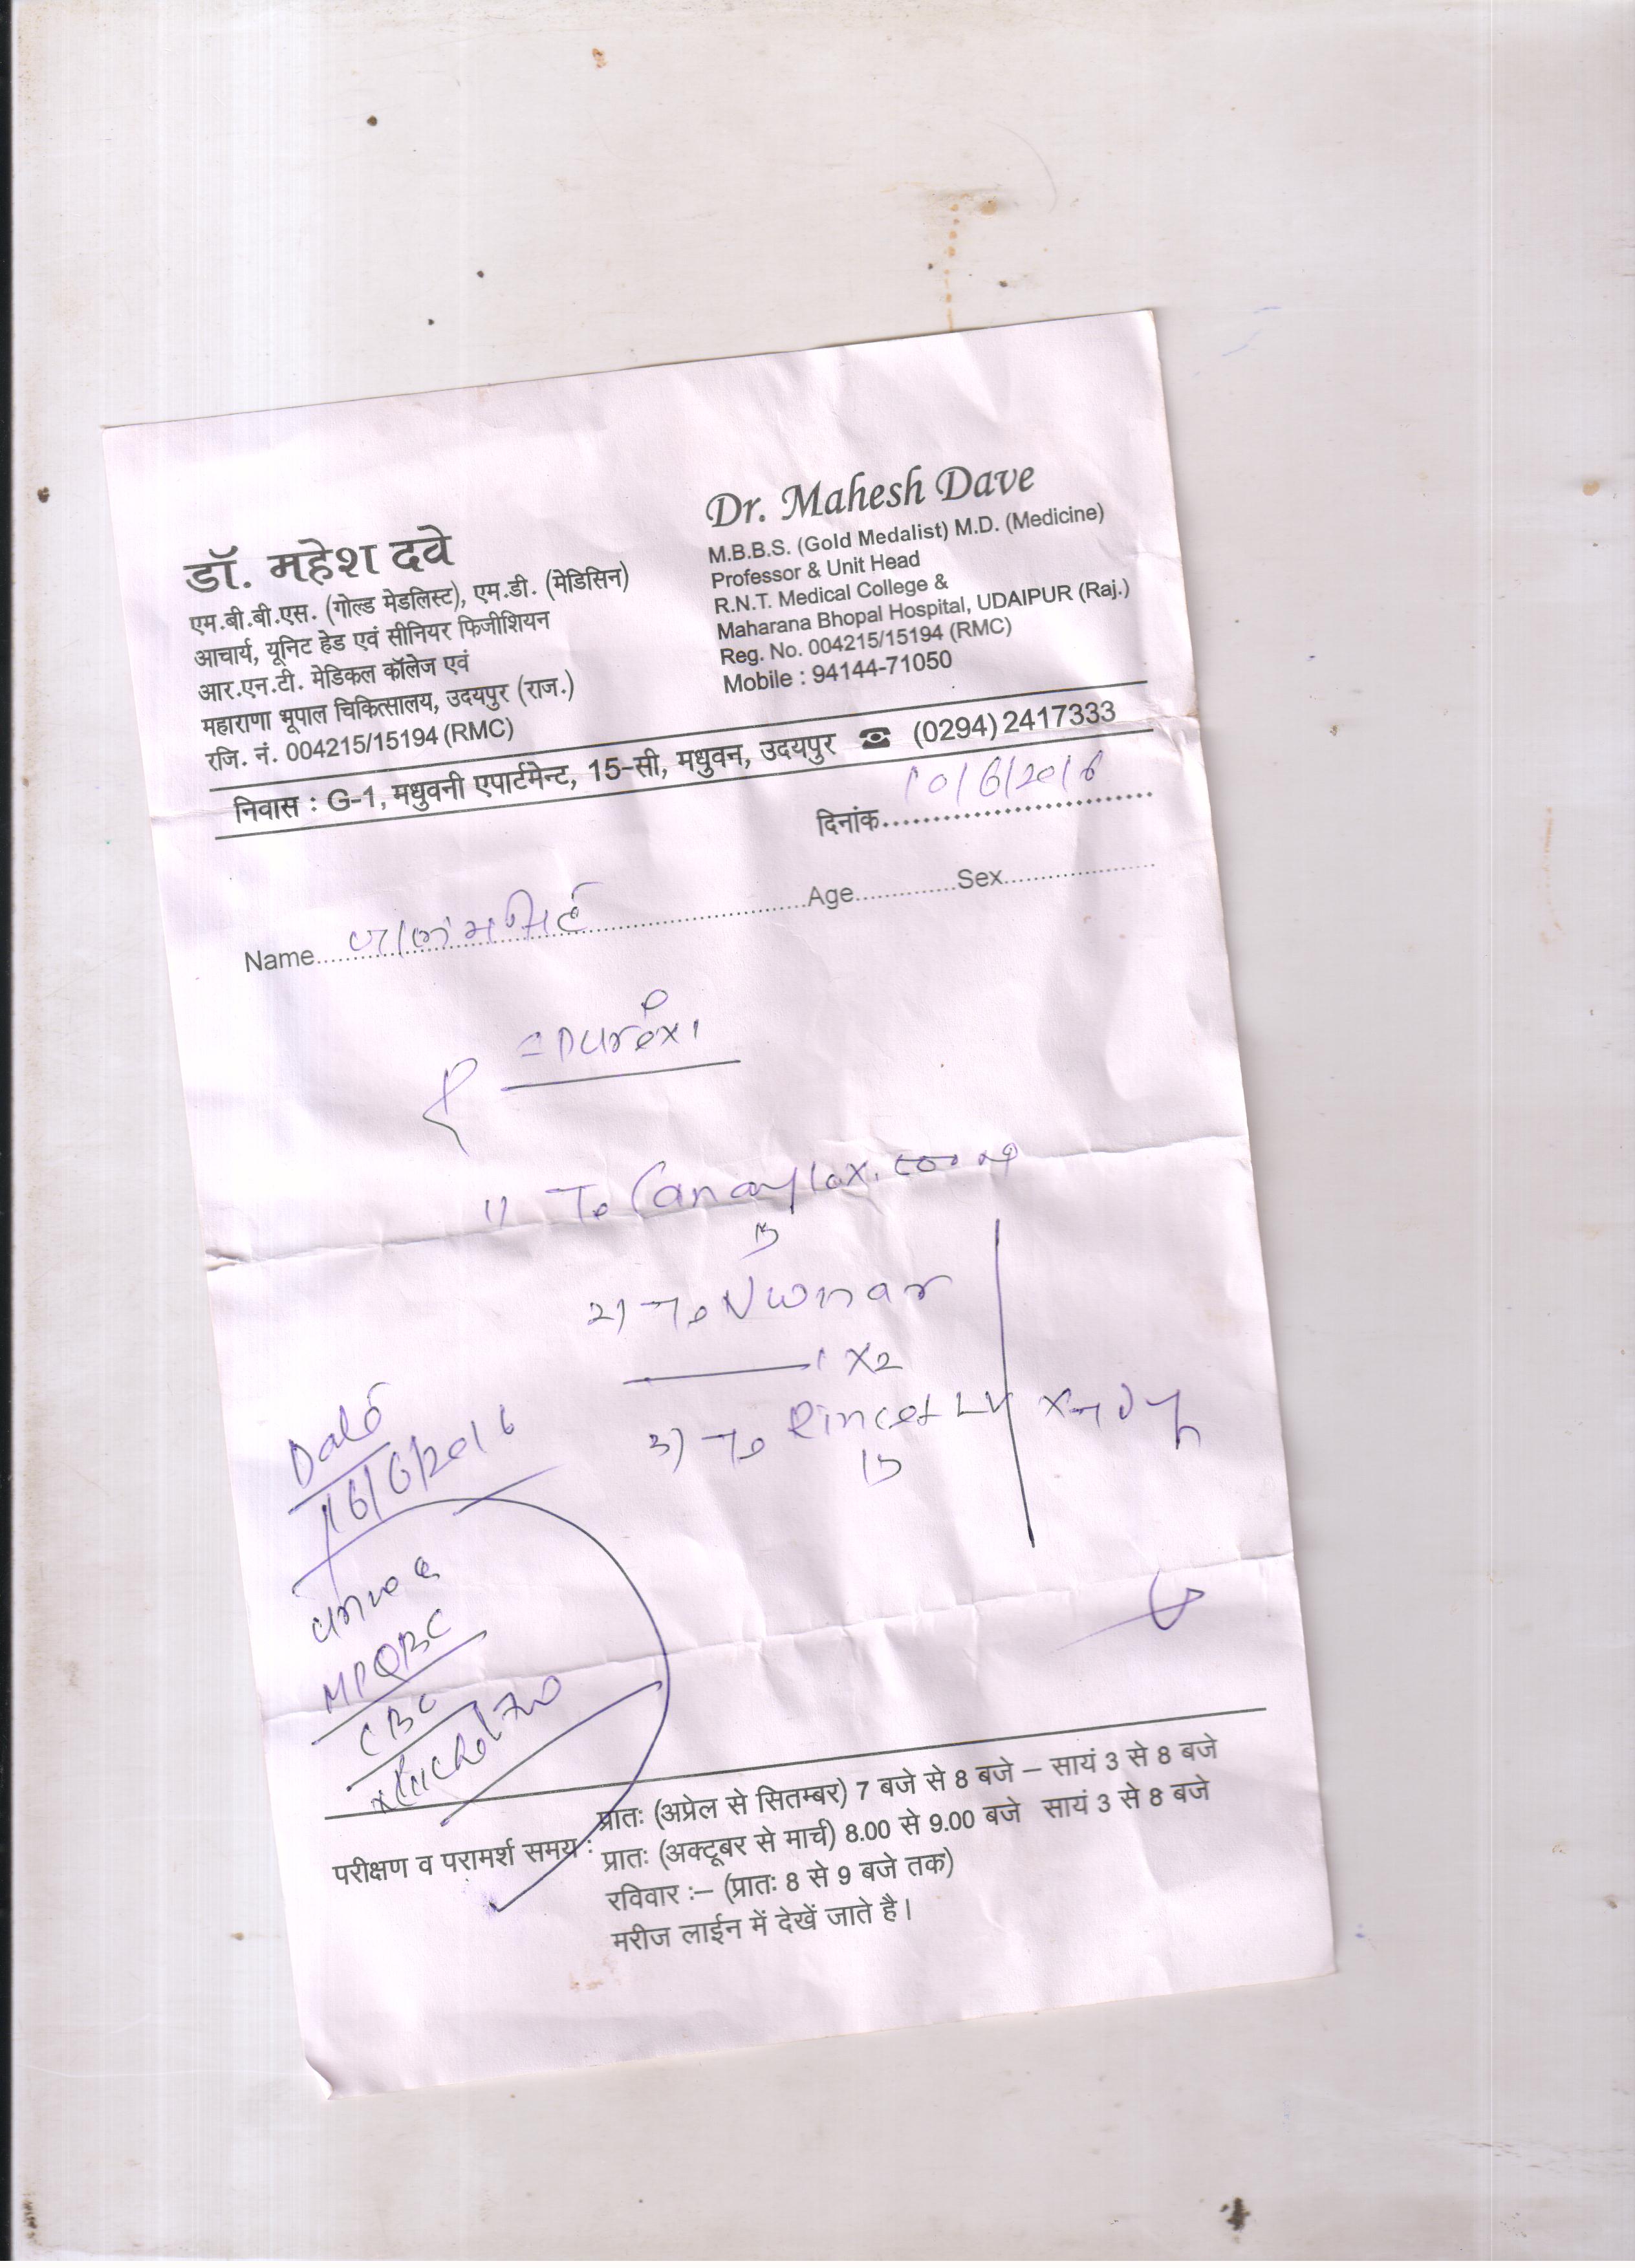 डॉ. महेश दवे
एम.बी.बी.एस. (गोल्ड मेडलिस्ट), एम.डी. (मेडिसिन)
आचार्य, यूनिट हेड एवं सीनियर फिजीशियन
आर.एन.टी. मेडिकल कॉलेज एवं
महाराणा भूपाल चिकित्सालय, उदयपुर (राज.)
रजि. नं. 004215/15194 (RMC)
Dr. Mahesh Dave
M.B.B.S. (Gold Medalist) M.D. (Medicine)
Professor & Unit Head
R.N.T. Medical College &
Maharana Bhopal Hospital, UDAIPUR (Raj.)
Reg. No. 004215/15194 (RMC)
Mobile : 94144-71050
निवास : G-1, मधुवनी एपार्टमेन्ट, 15-सी, मधुवन, उदयपुर ☎ (0294) 2417333
दिनांक 10/6/2016
Name Age Sex
1)
2)
1 x2
3)
Date
16/6/2016
MPQBC
CBC
परीक्षण व परामर्श समय : प्रातः (अप्रेल से सितम्बर) 7 बजे से 8 बजे – सायं 3 से 8 बजे
प्रातः (अक्टूबर से मार्च) 8.00 से 9.00 बजे सायं 3 से 8 बजे
रविवार :– (प्रातः 8 से 9 बजे तक)
मरीज लाईन में देखें जाते है।